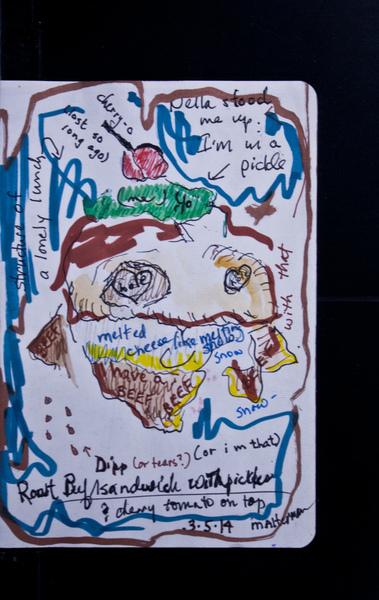 cherry-o
(lost so
long ago)
Della stood
me up.
I'm in a
pickle
structure of
a lonely lunch
(me) yo
hole
with that
melted
cheese like melting
snow
snow
BEEF
have a
BEEF
BEEF
BEEF
snow-
Dipp (or tears?) (or i m that)
Roast Beef sandwich with pickles
& cherry tomato on top
.3.5.14 malterman